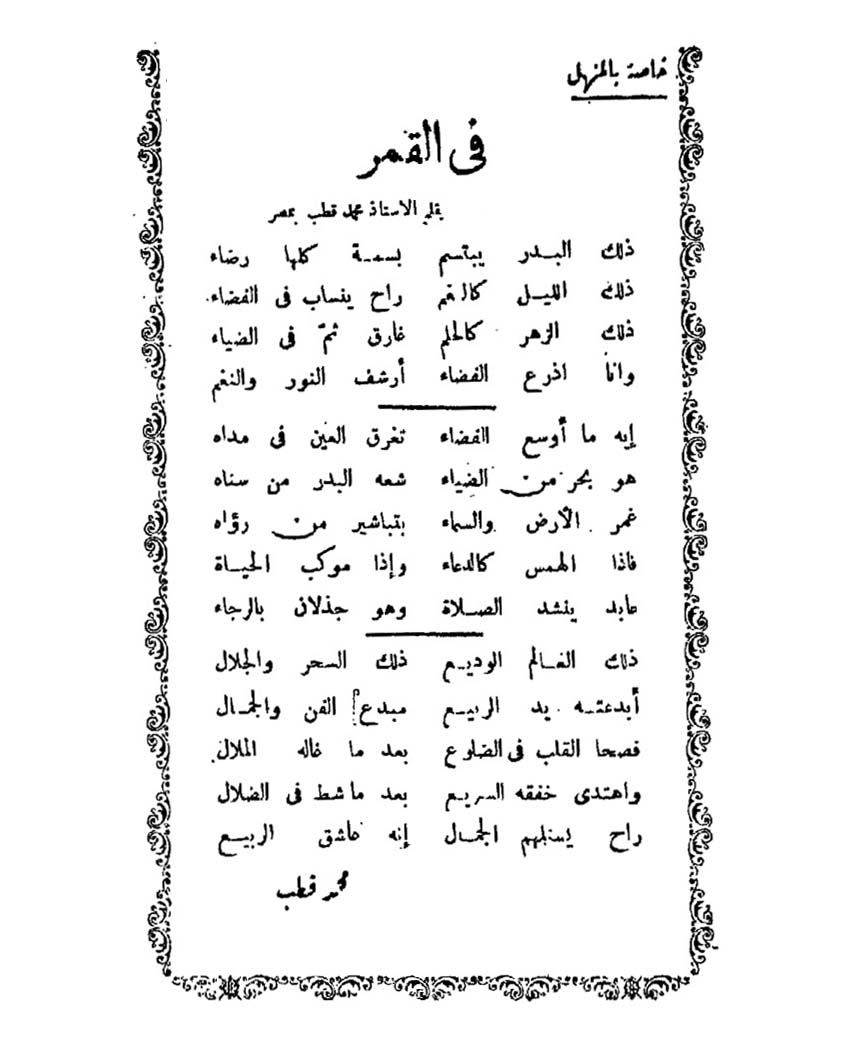 خاصة بالمنهل
فى القمر
بقلم الاستاذ محمد قطب بمصر
ذلك البـدر يبتسم بسمـة كلها رضاء
ذلك الليـل كالنغم راح ينساب فى الفضاء
ذلك الزهر كالحلم غارق ثمّ فى الضياء
وانا اذرع الفضاء أرشف النور والنغم
إيه ما أوسع الفضاء تغرق العين فى مداه
هو بحر من الضياء شعه البدر من سناه
غمر الأرض والسماء بتباشير من رؤاه
فاذا الهمس كالدعاء وإذا موكب الحيـاة
عابد ينشد الصـلاة وهو جذلان بالرجاء
ذلك العـالم الوديـع ذلك السحر والجلال
أبدعتـه يد الربيـع مبدع الفن والجمـال
فصحا القلب فى الضلوع بعد ما غاله الملال
واهتدى خفقه السريـع بعد ما شط فى الضلال
راح يستلهم الجمـال إنه عاشق الربيـع
محمد قطب